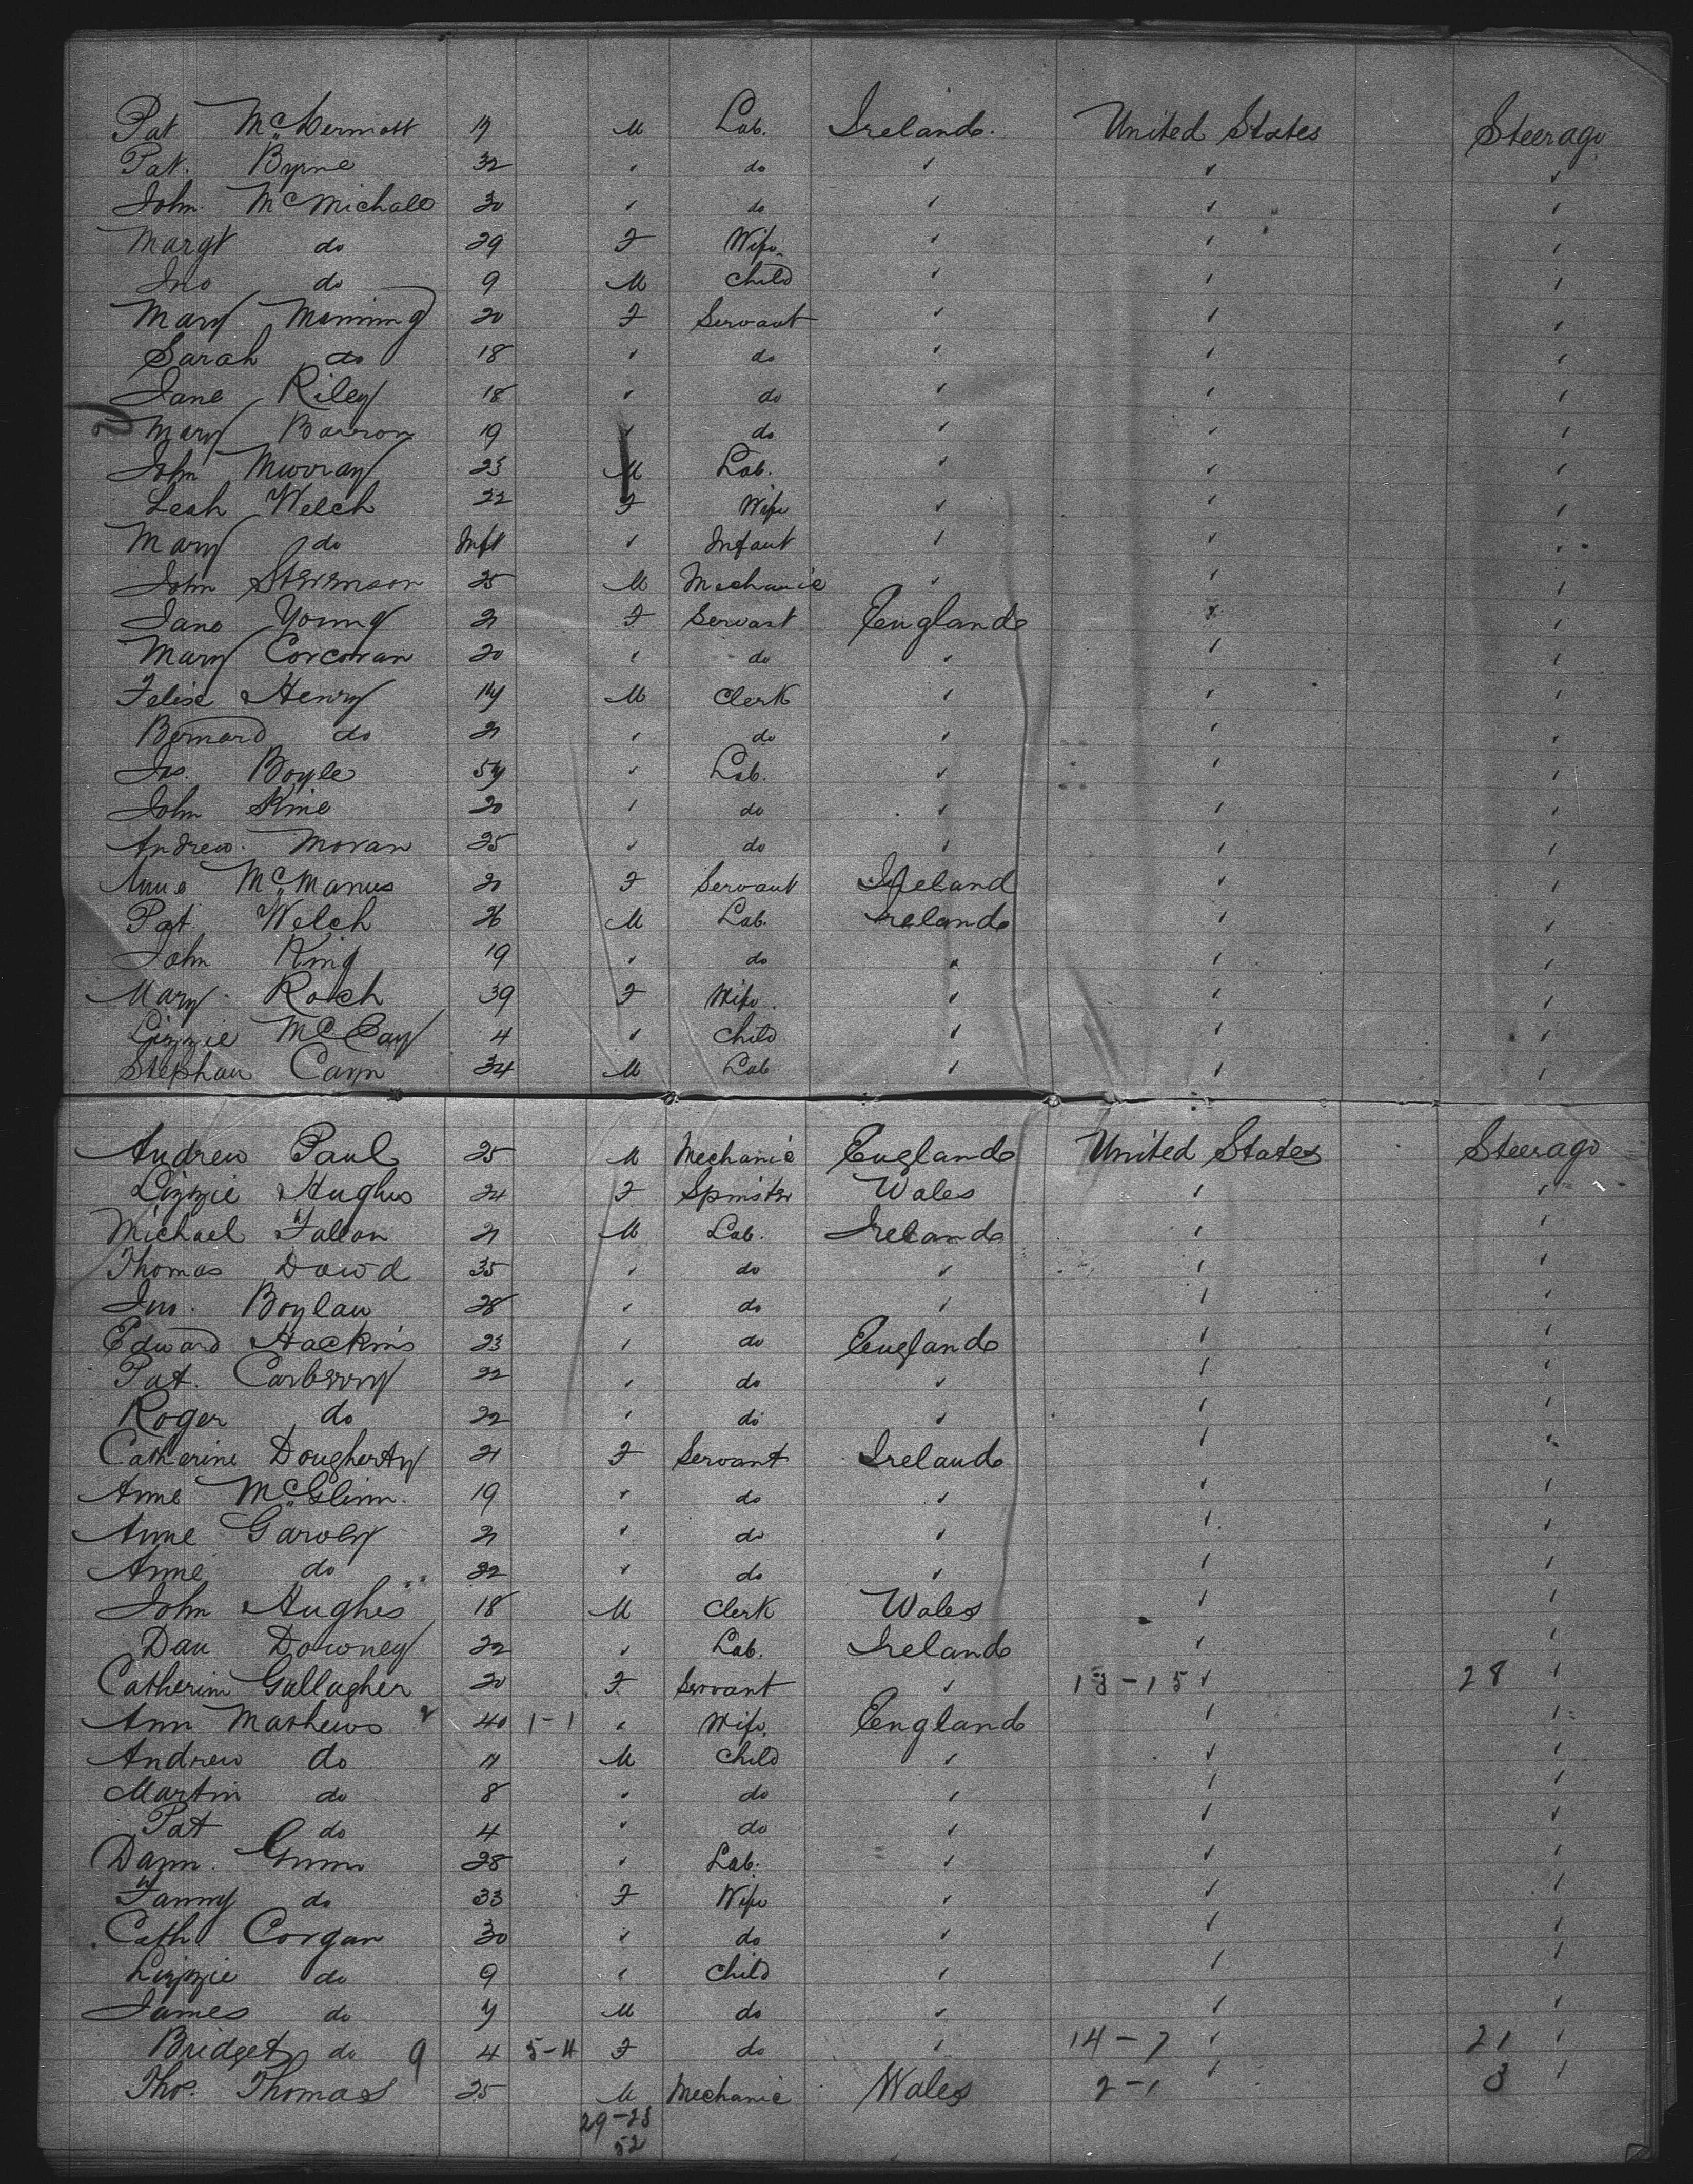 Pat McDermott 19 M Lab. Ireland. United States Steerage
Pat. Byrne 32 " do " " "
John McMichael 30 " do " " "
Margt do 29 F Wife " " "
Jno do 9 M Child " " "
Mary Manning 20 F Servant " " "
Sarah do 18 " do " " "
Jane Riley 18 " do " " "
Mary Barron 19 " do " " "
John Murray 23 M Lab. " " "
Leah Welch 22 F Wife " " "
Mary do Inft " Infant " " "
John Stevenson 25 M Mechanic " " "
Jane Young 21 F Servant England " "
Mary Corcoran 20 " do " " "
Felix Henry 17 M Clerk " " "
Bernard do 21 " do " " "
Jas. Boyle 57 " Lab. " " "
John Kine 20 " do " " "
Andrew. Moran 25 " do " " "
Anne McManus 20 F Servant Ireland " "
Pat. Welch 26 M Lab. Ireland " "
John King 19 " do " " "
Mary Roach 39 F Wife " " "
Lizzie McCay 4 " Child " " "
Stephan Cann 34 M Lab " " "
Andrew Paul 25 M Mechanic England United States Steerage
Lizzie Hughes 24 F Spinster Wales " "
Michael Fallon 21 M Lab. Ireland " "
Thomas Dowd 35 " do " " "
Jno. Boylan 28 " do " " "
Edward Hackins 23 " do England " "
Pat. Carberry 22 " do " " "
Roger do 22 " do " " "
Catherine Dougherty 21 F Servant Ireland " "
Anne McGlinn. 19 " do " " "
Anne 21 " do " " "
Anne do 22 " do " " "
John Hughes 18 M Clerk Wales " "
Dan Downey 22 " Lab. Ireland " "
Catherine Gallagher 20 F Servant " 13-15 " 28 "
Ann Mathews 40 1-1 " Wife England " "
Andrew do 11 M Child " " "
Martin do 8 " do " " "
Pat do 4 " do " " "
Dann. Gunn 28 " Lab. " " "
Fanny do 33 F Wife " " "
Cath Corgan 30 " do " " "
Lizzie do 9 " Child " " "
James do 7 M do " " "
Bridget do 9 4 5-4 F do " 14-7 " 21 "
Thos. Thomas 25 M Mechanic Wales 2-1 " 3 "
29-23
52